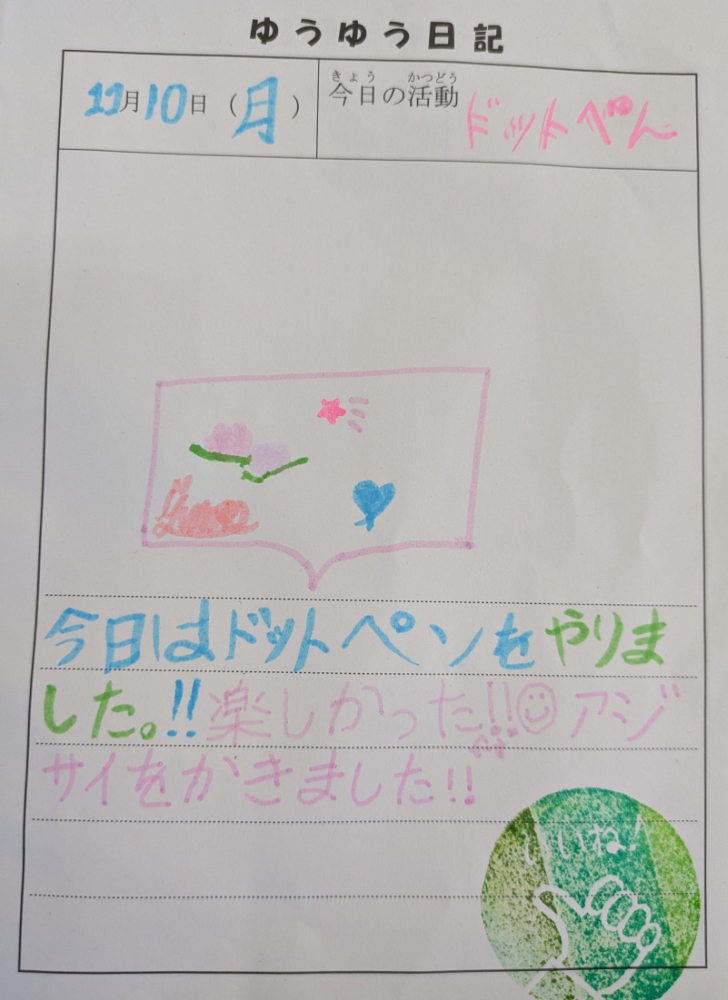 ゆうゆう日記
11月10日(月)
きょう かつどう
今日の活動
ドットペん
今日はドットペンをやりま
した。!!楽しかった!!☺アジ
サイをかきました!!
いいね!